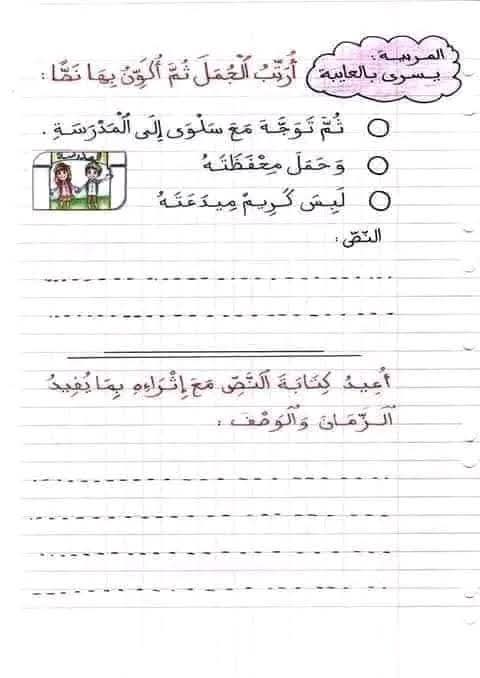 المدرسة :
يسرى بالعايبة
أُرَتِّبُ الْجُمَلَ ثُمَّ أُكَوِّنُ بِهَا نَصًّا :
ثُمَّ تَوَجَّهَ مَعَ سَلْوَى إِلَى الْمَدْرَسَةِ .
وَحَمَلَ مِحْفَظَتَهُ
المدرسة
لَبِسَ كَرِيمٌ مِيدَعَتَهُ
النّصّ :
أُعِيدُ كِتَابَةَ النَّصِّ مَعَ إِثْرَاءِهِ بِمَا يُفِيدُ
الزَّمَانَ وَالْوَصْفَ :